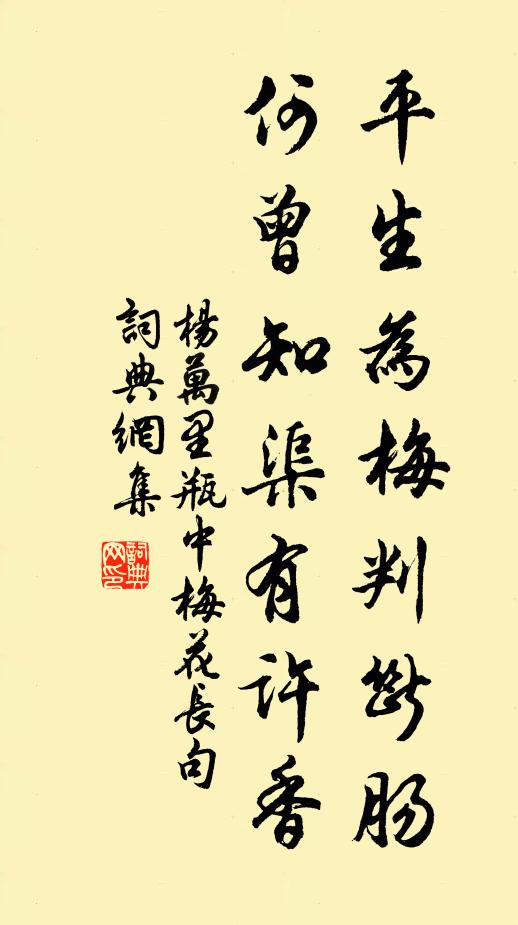 平生為梅判斷腸
何曾知渠有許香
楊萬里瓶中梅花長句
詞典網集
詞典
网印